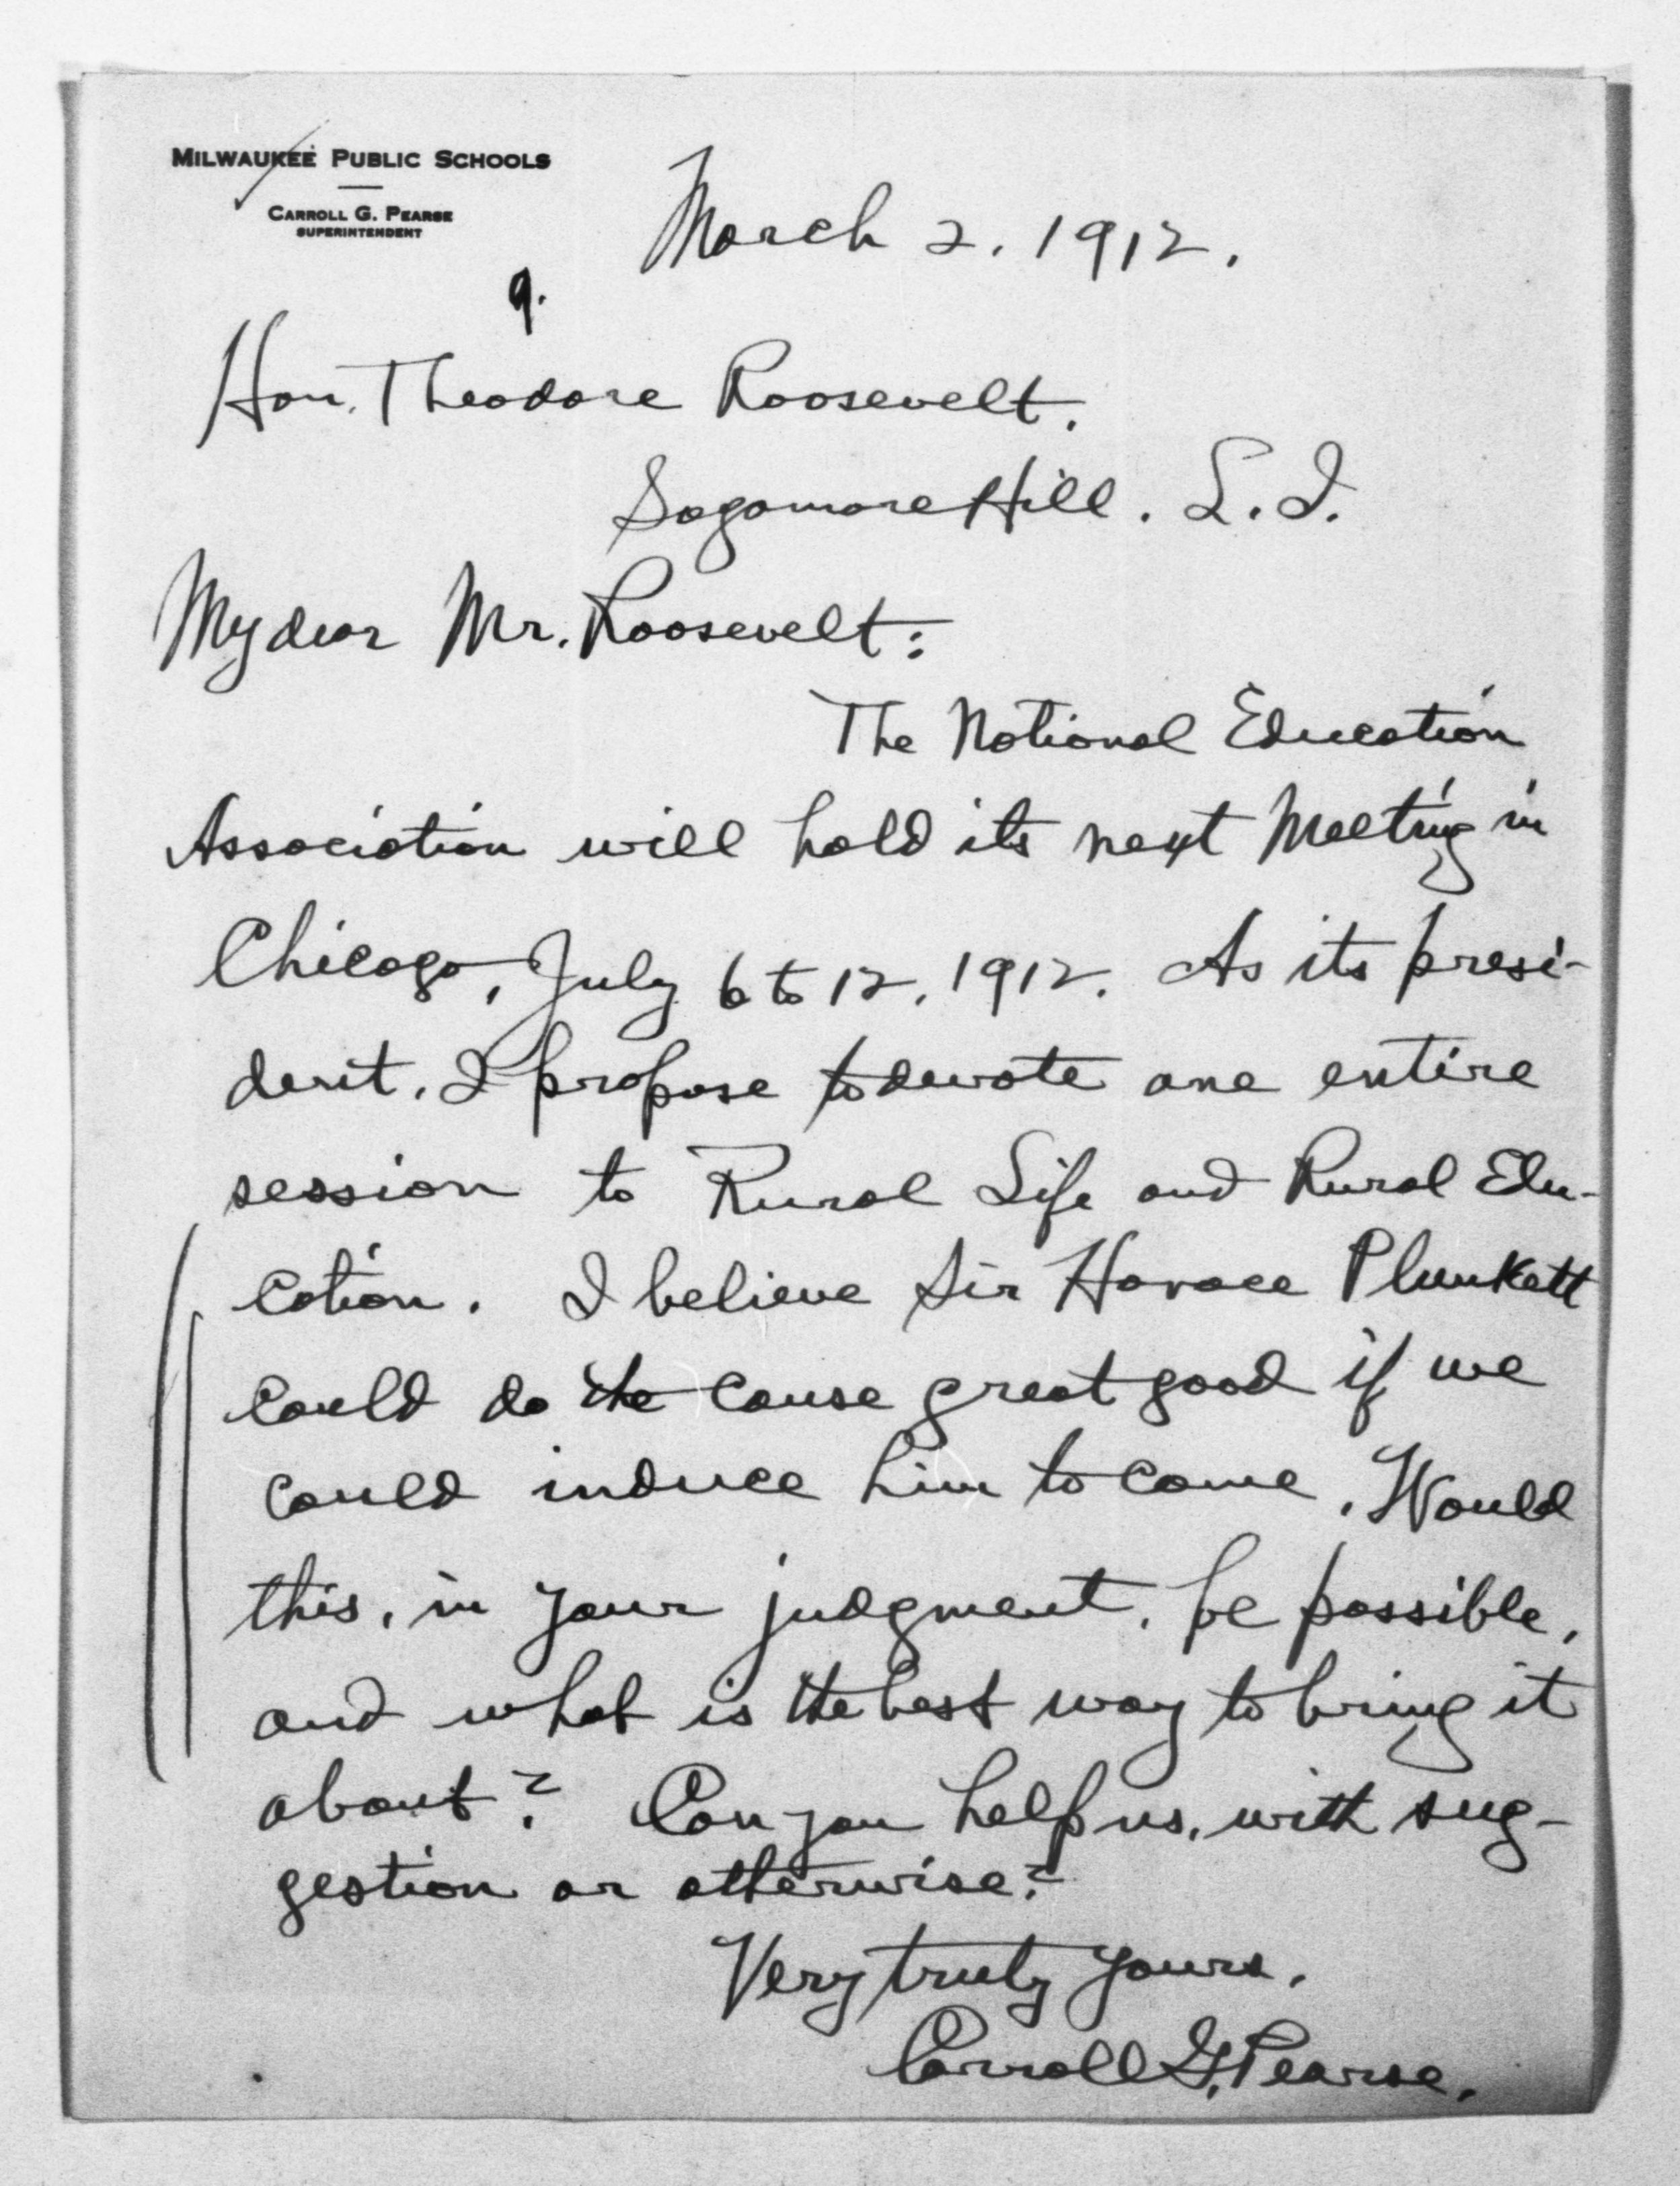 MILWAUKEE PUBLIC SCHOOLS
CARROLL G. PEARSE
SUPERINTENDENT
March 2. 1912.
9.
Hon. Theodore Roosevelt.
Sagamore Hill. L.I.
My dear Mr. Roosevelt:
The National Education
Association will hold its next Meeting in
Chicago, July 6 to 12, 1912. As its presi-
dent, I propose to devote one entire
session to Rural Life and Rural Edu-
cation. I believe Sir Horace Plunkett
could do the cause great good if we
could induce him to come. Would
this, in your judgment, be possible,
and what is the best way to bring it
about? Can you help us, with sug-
gestion or otherwise?
Very truly yours,
Carroll G. Pearse.